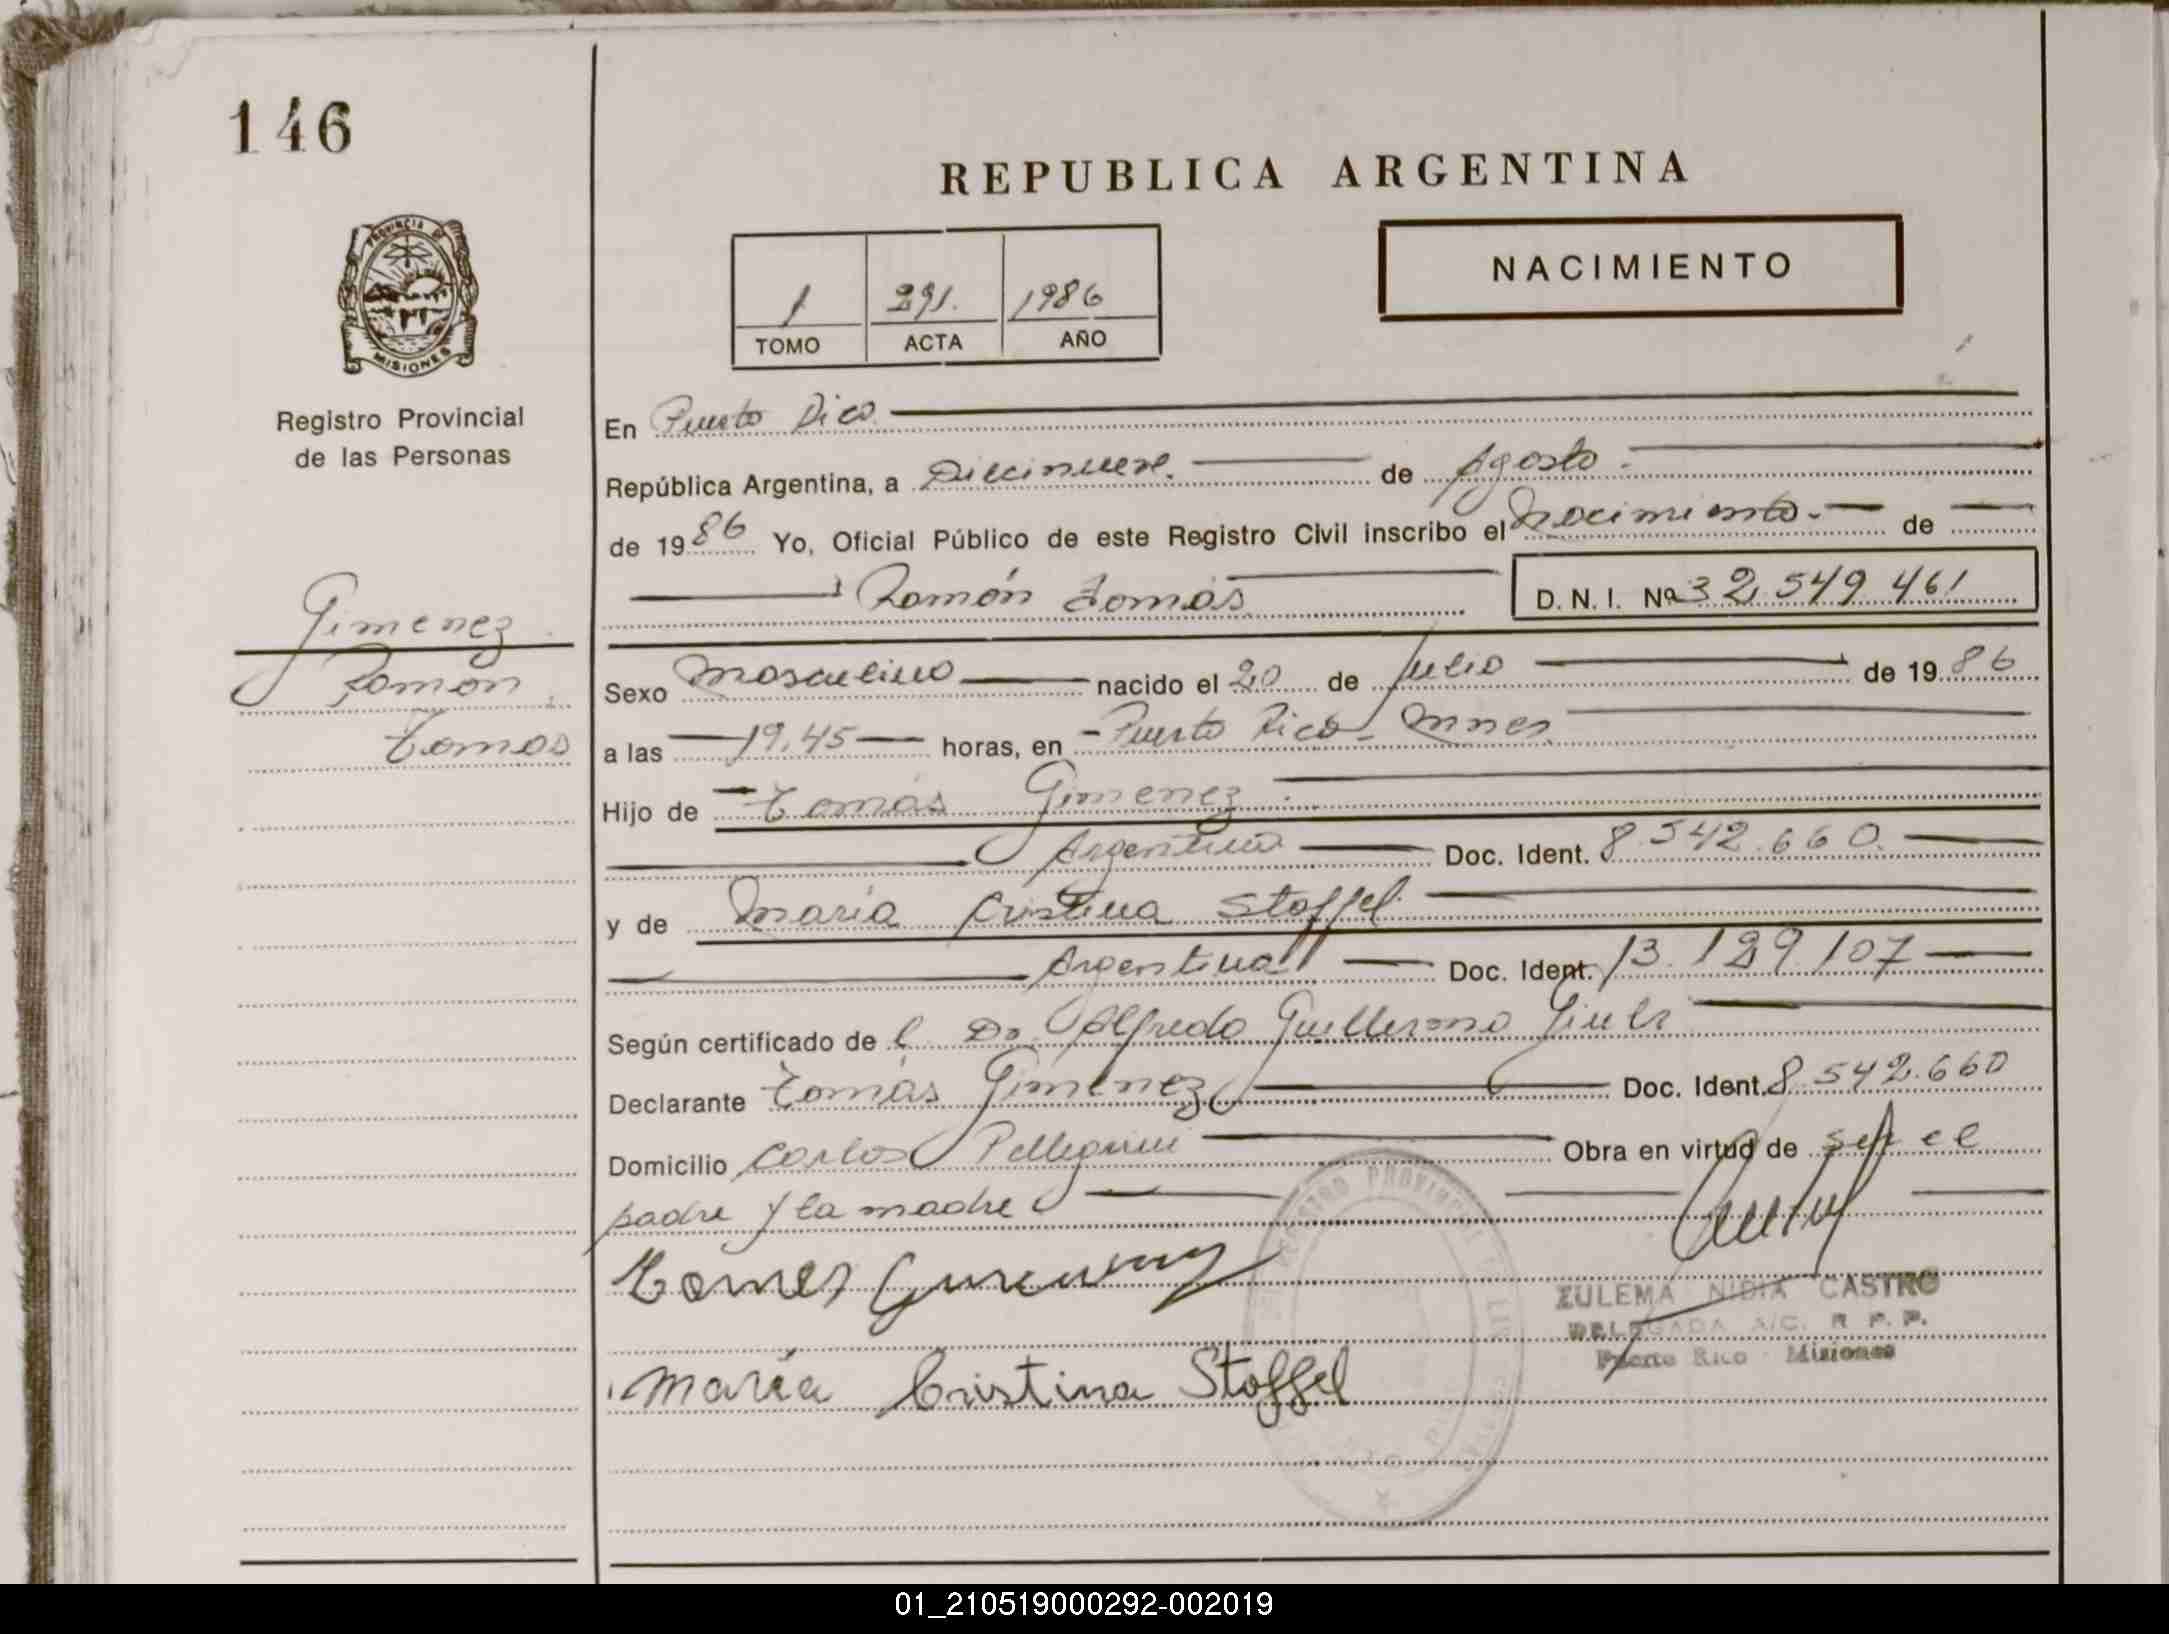 146
REPUBLICA ARGENTINA
PROVINCIA DE
MISIONES
Registro Provincial
de las Personas
1 291. 1986
TOMO ACTA AÑO
NACIMIENTO
En Puerto Rico.
República Argentina, a Diecinueve. de Agosto.
de 1986 Yo, Oficial Público de este Registro Civil inscribo el Nacimiento.- de
Ramón Tomás
D. N. I. Nº 32,549 461
Gimenez
Ramon
Tomas
Sexo Masculino nacido el 20 de Julio de 1986
a las 19,45 horas, en - Puerto Rico - Mnes
Hijo de Tomás Gimenez.
Argentino Doc. Ident. 8.542.660.
y de María Cristina Stoffel.
Argentina Doc. Ident. 13.129.107
Según certificado de l Dr. Alfredo Guillermo
Declarante Tomás Gimenez Doc. Ident. 8.542.660
Domicilio Carlos Pellegrini Obra en virtud de ser el
padre y la madre
Tomas Gimenez
ZULEMA NIDIA CASTRO
DELEGADA A/C. R P. P.
Puerto Rico - Misiones
Maria Cristina Stoffel
REGISTRO PROVINCIAL DE LAS
01_210519000292-002019